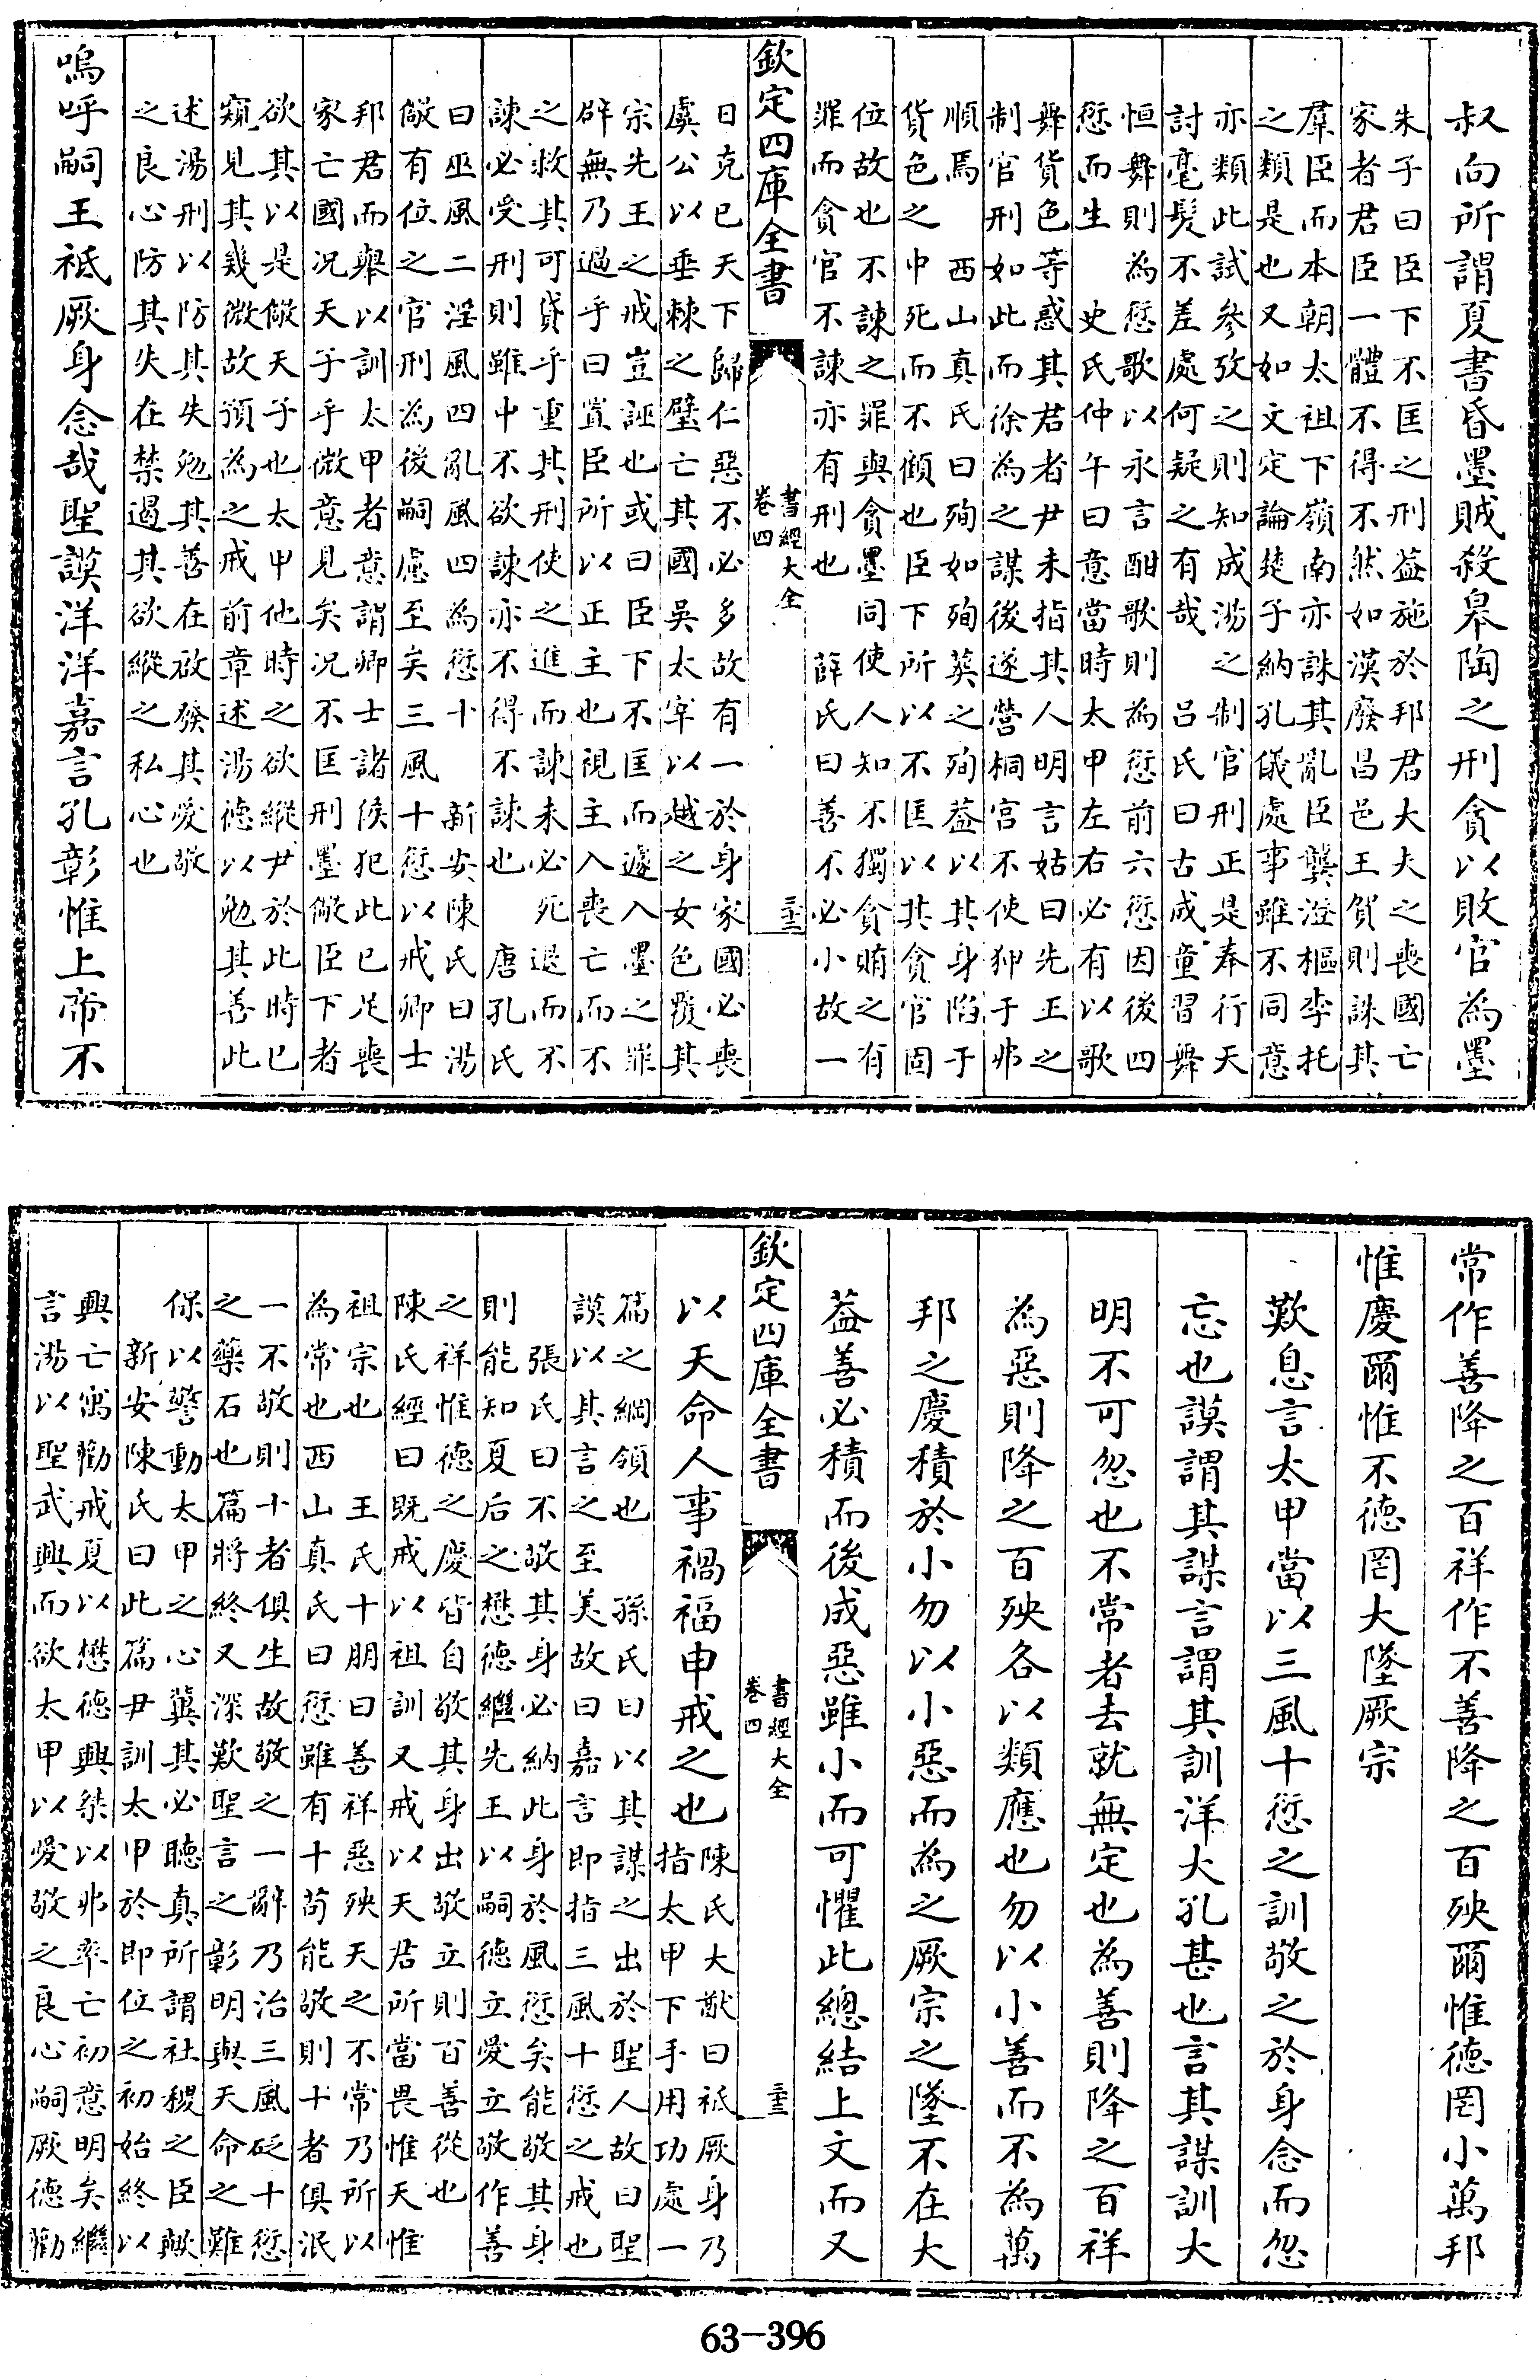 叔向所謂夏書昏墨賊殺皋陶之刑貪以敗官為墨
朱子曰臣下不匡之刑葢施於邦君大夫之喪國亡
家者君臣一體不得不然如漢廢昌邑王賀則誅其
羣臣而本朝太祖下嶺南亦誅其亂臣龔澄樞李托
之類是也又如文定論楚子納孔儀處事雖不同意
亦類此試參攷之則知成湯之制官刑正是奉行天
討毫髮不差處何疑之有哉　呂氏曰古成童習舞
恒舞則為愆歌以永言酣歌則為愆前六愆因後四
愆而生　史氏仲午曰意當時太甲左右必有以歌
舞貨色等惑其君者尹未指其人明言姑曰先王之
制官刑如此而徐為之謀後遂營桐宮不使狎于弗
順焉　西山真氏曰殉如殉葬之殉葢以其身陷于
貨色之中死而不顧也臣下所以不匡以其貪官固
位故也不諫之罪與貪墨同使人知不獨貪賄之有
罪而貪官不諫亦有刑也　薛氏曰善不必小故一
欽定四庫全書
書經大全
卷四
三十三
日克已天下歸仁惡不必多故有一於身家國必喪
虞公以垂棘之璧亡其國吳太宰以越之女色覆其
宗先王之戒豈誣也或曰臣下不匡而遽入墨之罪
辟無乃過乎曰置臣所以正主也視主入喪亡而不
之救其可貸乎重其刑使之進而諫未必死退而不
諫必受刑則雖中不欲諫亦不得不諫也　唐孔氏
曰巫風二淫風四亂風四為愆十　新安陳氏曰湯
儆有位之官刑為後嗣慮至矣三風十愆以戒卿士
邦君而舉以訓太甲者意謂卿士諸侯犯此已足喪
家亡國况天子乎微意見矣况不匡刑墨儆臣下者
欲其以是儆天子也太甲他時之欲縱尹於此時已
窺見其幾微故預為之戒前章述湯德以勉其善此
述湯刑以防其失勉其善在啟發其愛敬
之良心防其失在禁遏其欲縱之私心也
嗚呼嗣王祗厥身念哉聖謨洋洋嘉言孔彰惟上帝不
常作善降之百祥作不善降之百殃爾惟德罔小萬邦
惟慶爾惟不德罔大墜厥宗
歎息言太甲當以三風十愆之訓敬之於身念而忽
忘也謨謂其謀言謂其訓洋大孔甚也言其謀訓大
明不可忽也不常者去就無定也為善則降之百祥
為惡則降之百殃各以類應也勿以小善而不為萬
邦之慶積於小勿以小惡而為之厥宗之墜不在大
葢善必積而後成惡雖小而可懼此總結上文而又
欽定四庫全書
書經大全
卷四
三十三
以天命人事禍福申戒之也陳氏大猷曰祗厥身乃
指太甲下手用功處一
篇之綱領也　孫氏曰以其謀之出於聖人故曰聖
謨以其言之至美故曰嘉言即指三風十愆之戒也
張氏曰不敬其身必納此身於風愆矣能敬其身
則能知夏后之懋德繼先王以嗣德立愛立敬作善
之祥惟德之慶皆自敬其身出敬立則百善從也
陳氏經曰既戒以祖訓又戒以天居所當畏惟天惟
祖宗也　王氏十朋曰善祥惡殃天之不常乃所以
為常也西山真氏曰愆雖有十苟能敬則十者俱泯
一不敬則十者俱生故敬之一辭乃治三風砭十愆
之藥石也篇將終又深歎聖言之彰明與天命之難
保以警動太甲之心冀其必聽真所謂社稷之臣歟
新安陳氏曰此篇尹訓太甲於即位之初始終以
興亡寓勸戒夏以懋德興桀以弗率亡初意明矣繼
言湯以聖武興而欲太甲以愛敬之良心嗣厥德勸
63-396